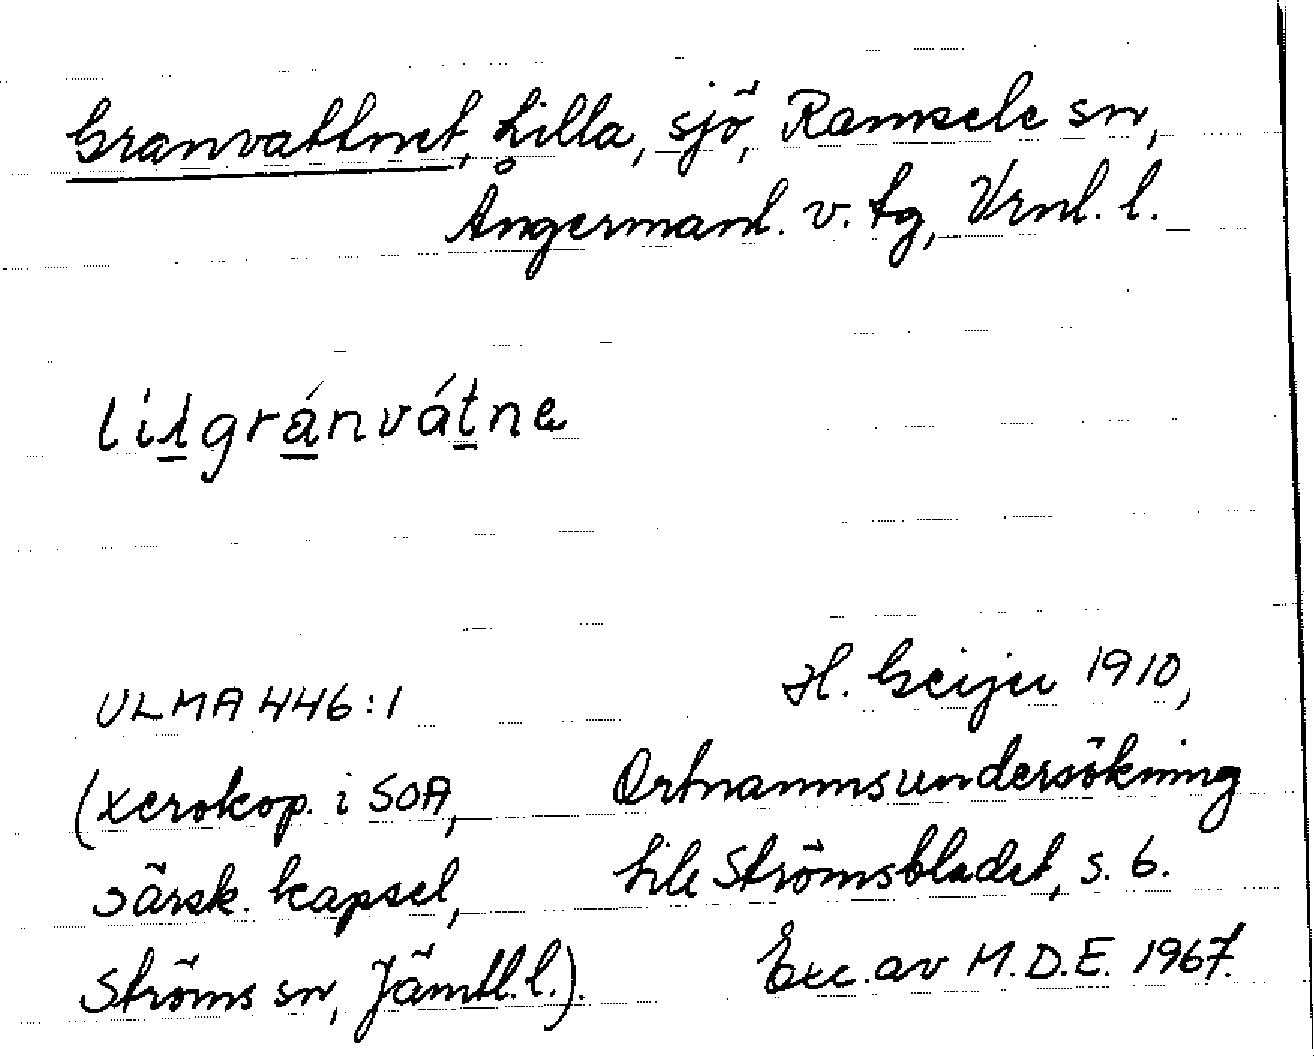 Granvattnet, Lilla, sjö, Ramsele sn,
Ångermanl. v. tg, Vrnl. l.
lilgránvátne
ULMA 446:1
(xerokop. i SOA,
särsk. kapsel,
Ströms sn, Jämtl. l.).
H. Geijer 1910,
Ortnamnsundersökning
till Strömsbladet, s. 6.
Exc. av M.D.E. 1967.